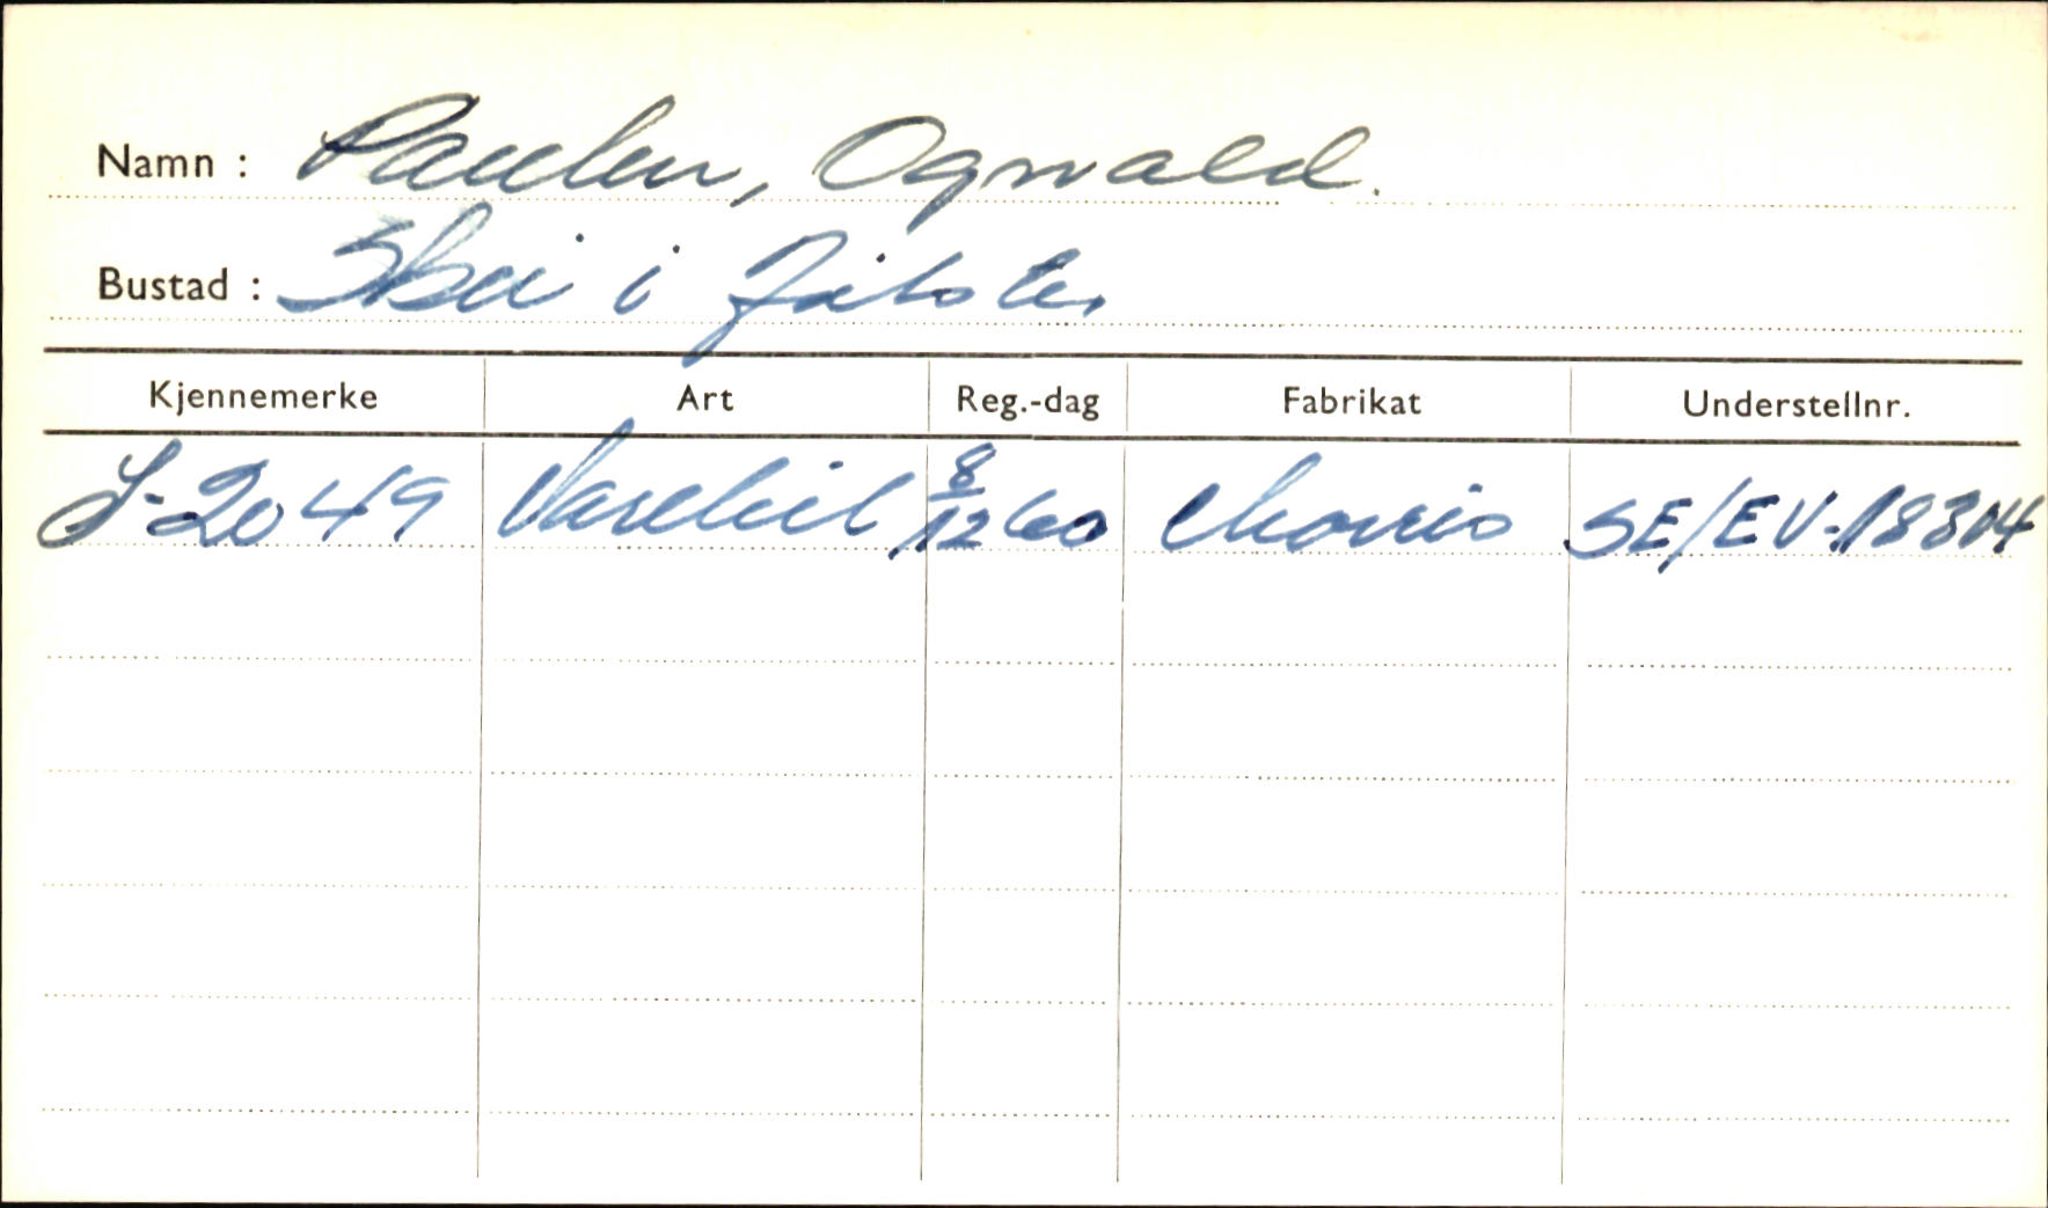 Namn : Paulen, Ognvald.
Bustad : Skei i Jølster
Kjennemerke Art Reg.-dag Fabrikat Understellnr.
S-2049 Varebil 8/12 60 Morris SE/EV-18314